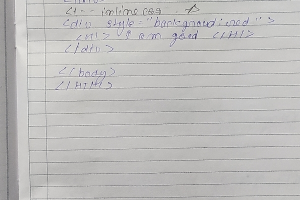 <!-- inline css -->
<div style="background:red">
<H1> I am good </H1>
</div>
</body>
</HTML>